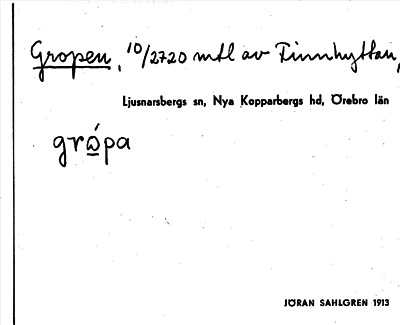 Gropen, 10/2720 mtl av Finnhyttan,
Ljusnarsbergs sn, Nya Kopparbergs hd, Örebro län
grώ̲pa
JÖRAN SAHLGREN 1913